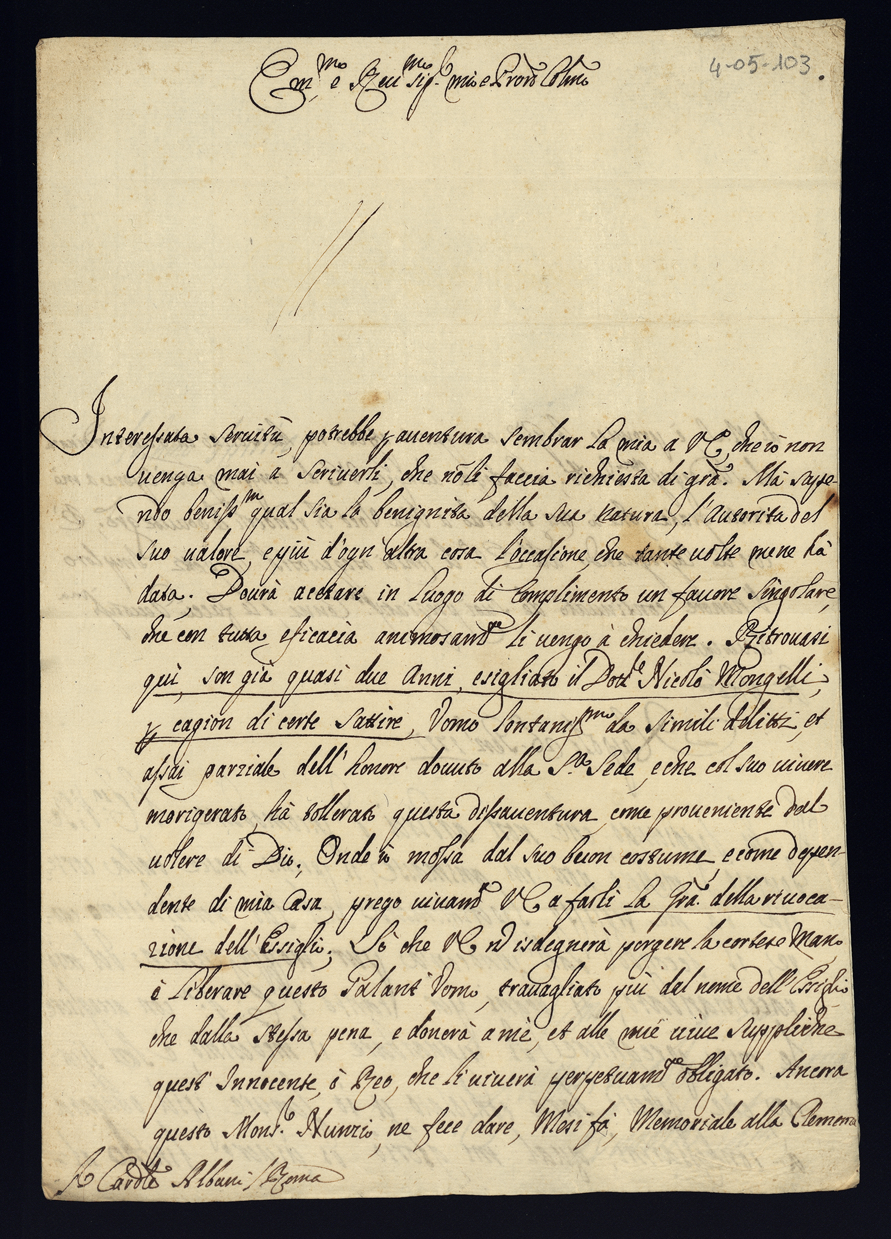 4-05-103.
Em.mo e Reu.mo Sig.r mio e Pron Colmo
Interessata seruitù, potrebbe p auentura sembrar la mia a VE, che io non
uenga mai à scriuerli, che nō li faccia richiesta di grã. Mà sape-
ndo beniss.mo qual sia la benignità della sua natura, l'Autorità del
suo ualore, e più d'ogn'altra cosa l'occasione, che tante uolte me ne hà
data. Dourà accettare in luogo di Complimento un fauore singolare,
che con tutta efficacia animosam.te li uengo à chiedere. Ritrouasi
qui, son già quasi due Anni, esigliato il Dott.r Nicolò Mongelli,
p cagion di certe Sattire, Vomo lontaniss.mo da simili delitti, et
assai parziale dell'honore douuto alla S.ta Sede, e che col suo uiuere
morigerato, hà tollerato questa disauentura, come proueniente dal
uolere di Dio. Onde io mossa dal suo buon costume, e come depen-
dente di mia Casa, prego uiuam.te VE a farli la Grã della riuoca-
zione dell'Essiglio. Sò che VE nō isdegnerà porgere la cortese Mano
à liberare questo Galant'Vomo, trauagliato più dal nome dell'Esiglio
che dalla stessa pena, e donerà a mè, et alle mie uiue suppliche
quest'Innocente, ò Reo, che li uiuerà perpetuam.te obligato. Ancora
questo Mons.r Nunzio, ne fece dare, Mesi fà, Memoriale alla Clemenza
Card.le Albani / Roma